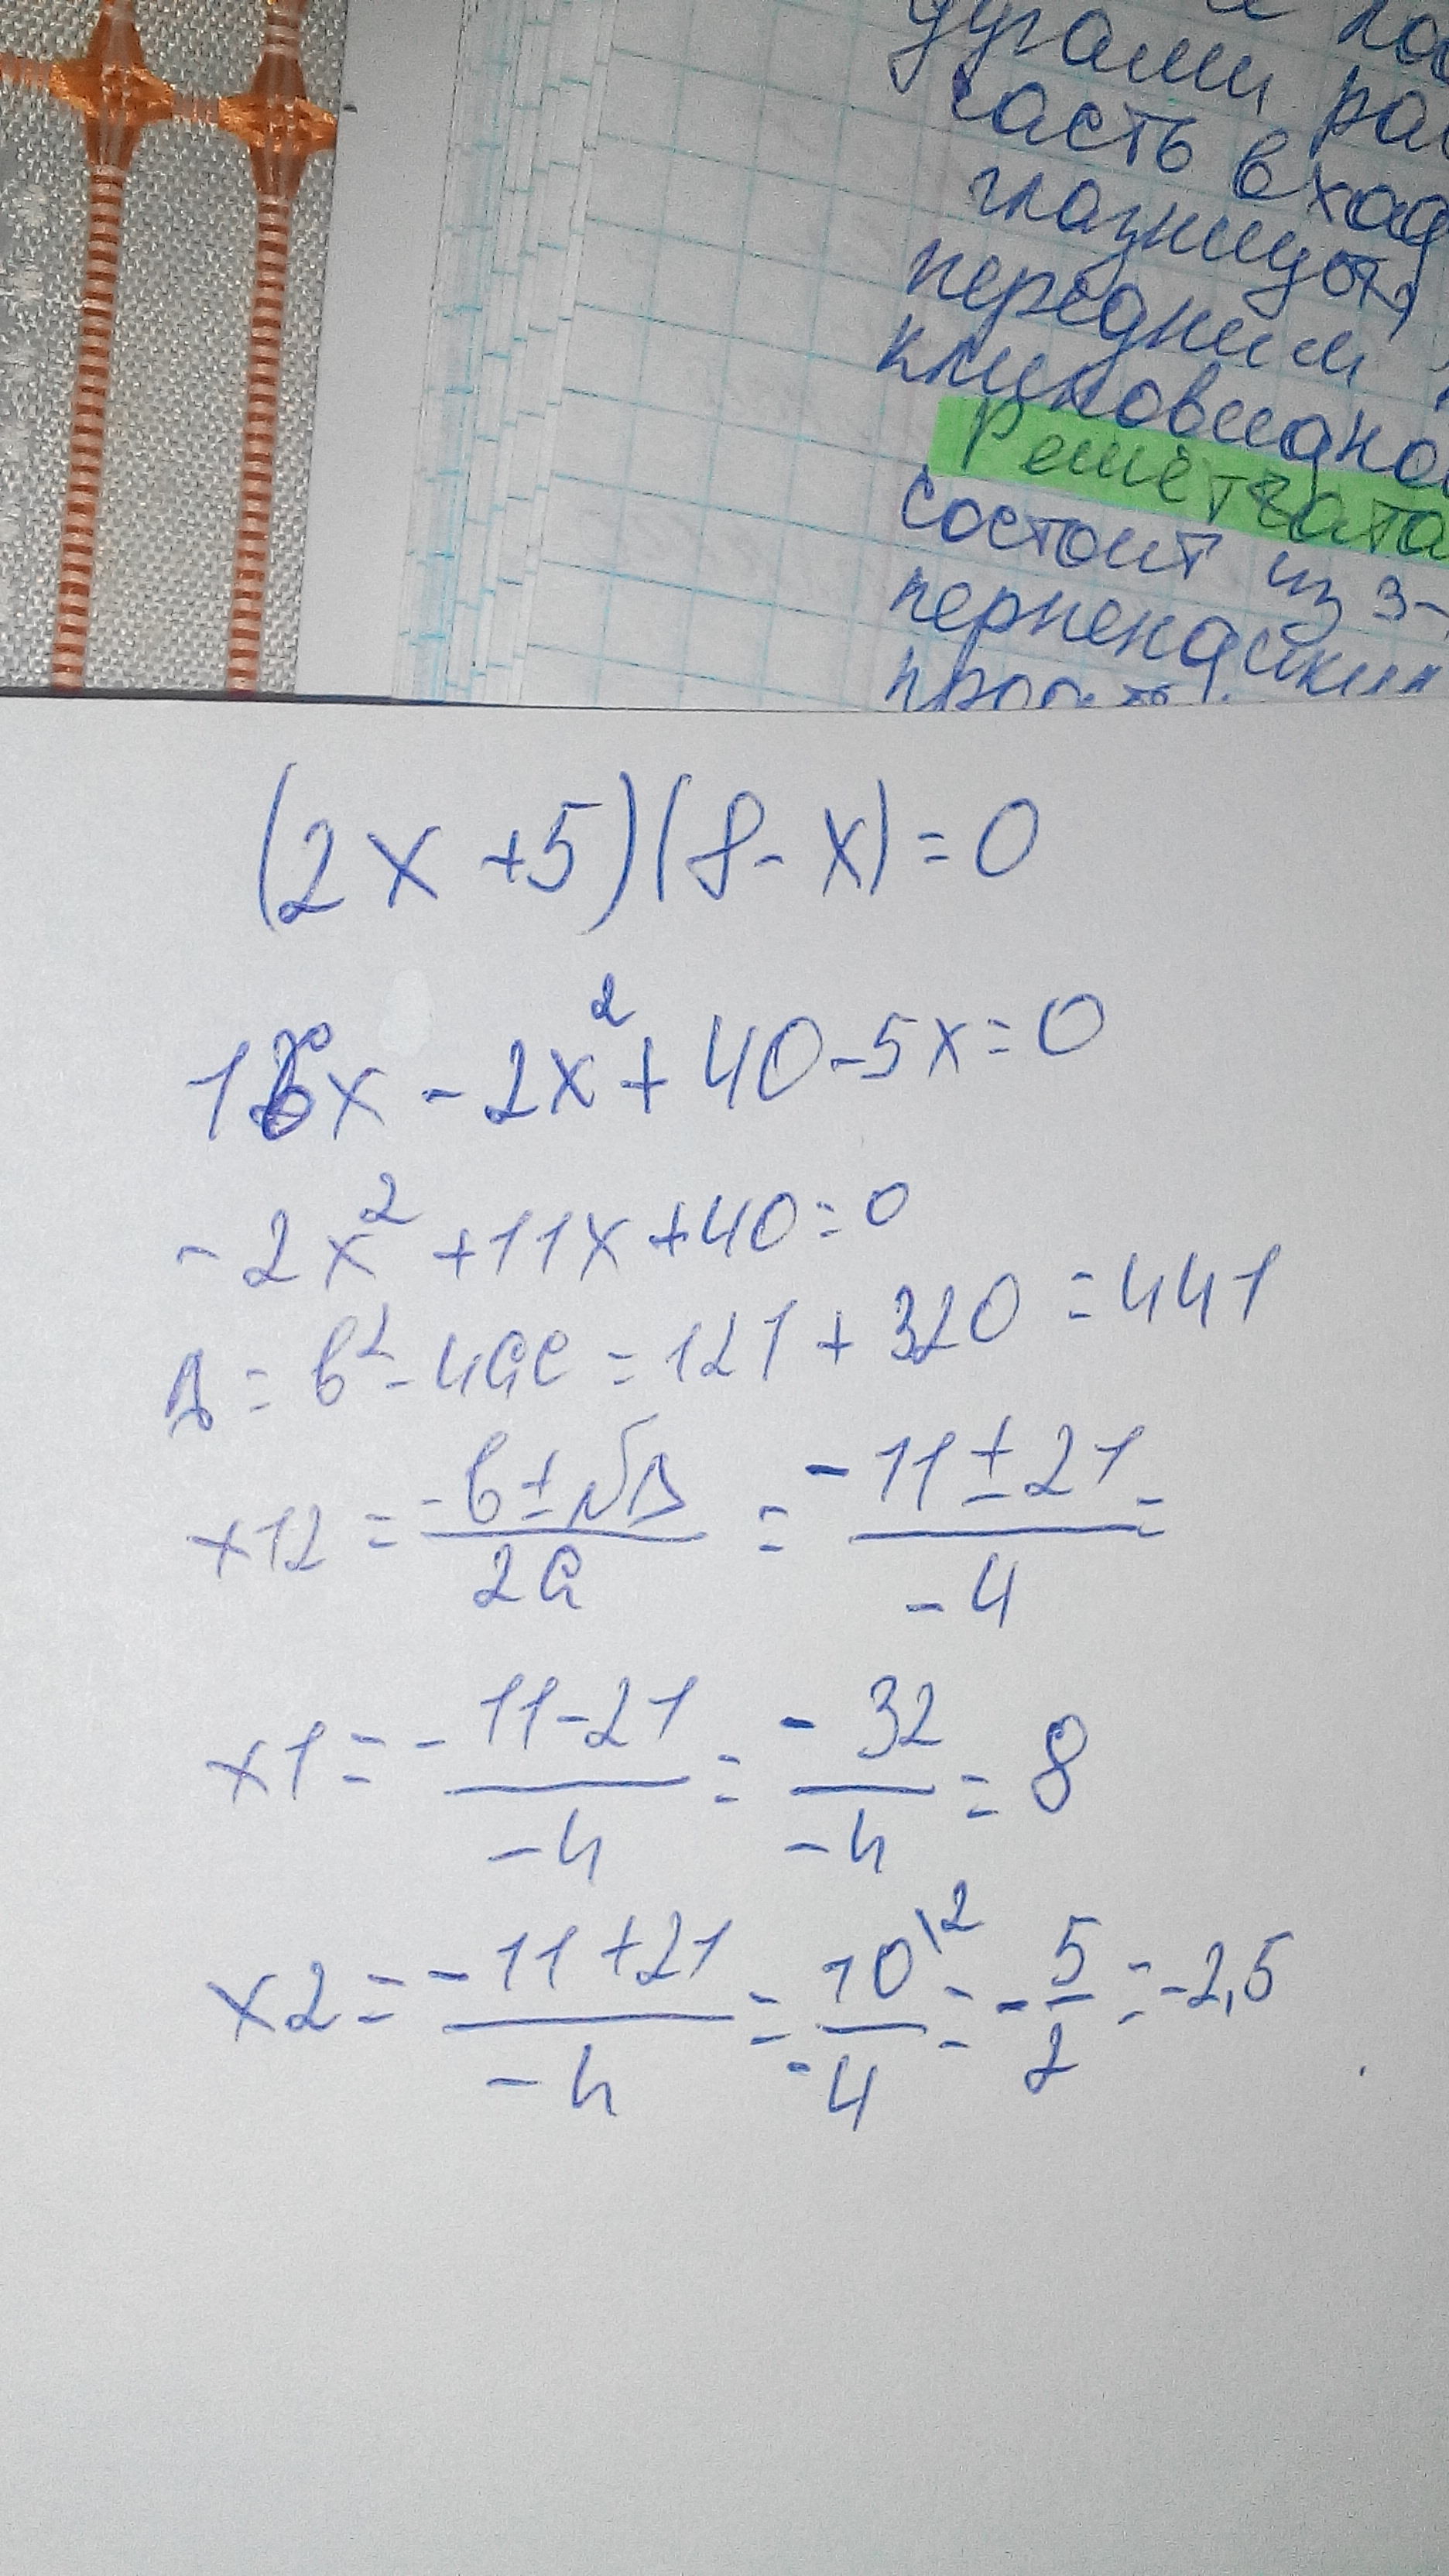 дугами
часть вход
глазницы,
передним
клиновидно
Решётчата
состоит из 3-
перпендикул
(2x+5)(8-x)=0
16x-2x²+40-5x=0
-2x²+11x+40=0
D=b²-4ac=121+320=441
x12=\frac{-b±√D}{2a}=\frac{-11±21}{-4}=
x1=\frac{-11-21}{-4}=\frac{-32}{-4}=8
x2=\frac{-11+21}{-4}=\frac{10\2}{-4}=-\frac{5}{2}=-2,5